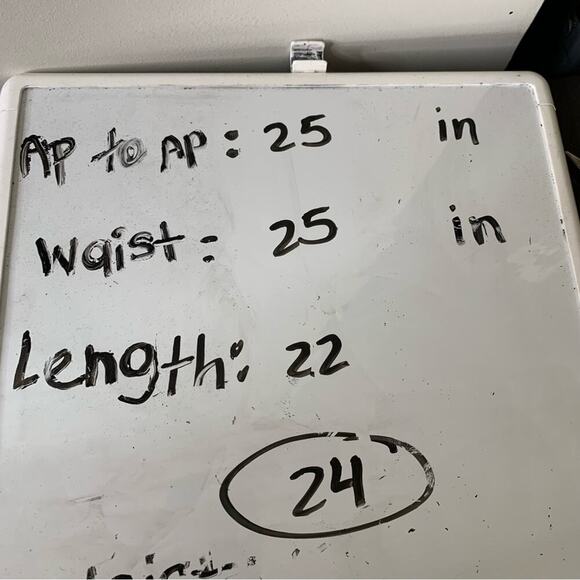 AP to AP: 25 in
Waist: 25 in
Length: 22
24